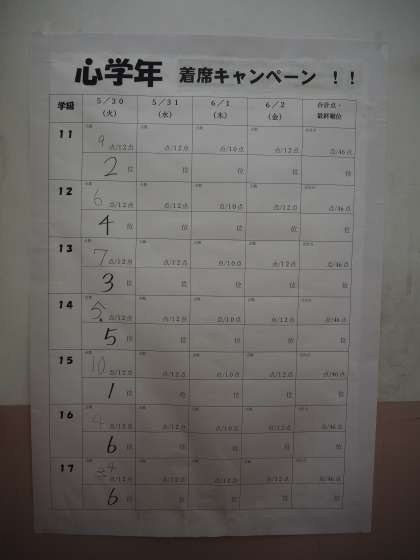 心学年 着席キャンペーン！！
学級 5/30 5/31 6/1 6/2 合計点・
(火) (水) (木) (金) 最終順位
11 9 点/12点 点/12点 点/10点 点/12点 点/46点
2 位 位 位 位 位
12 6 点/12点 点/12点 点/10点 点/12点 点/46点
4 位 位 位 位 位
13 7 点/12点 点/12点 点/10点 点/12点 点/46点
3 位 位 位 位 位
14 5 点/12点 点/12点 点/10点 点/12点 点/46点
5 位 位 位 位 位
15 10 点/12点 点/12点 点/10点 点/12点 点/46点
1 位 位 位 位 位
16 4 点/12点 点/12点 点/10点 点/12点 点/46点
6 位 位 位 位 位
17 4 点/12点 点/12点 点/12点 点/12点 点/46点
6 位 位 位 位 位